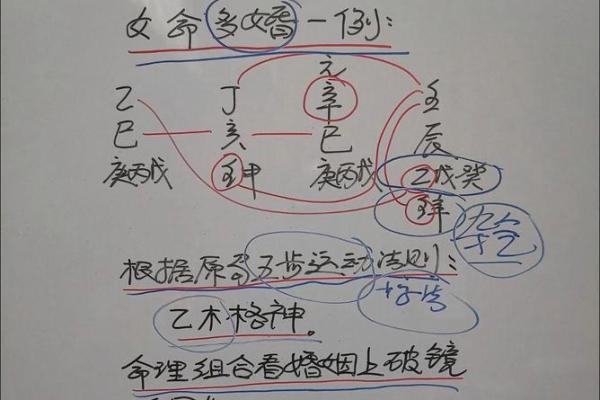 女命多婚一例：
元
乙 丁 辛 壬
巳 亥 巳 辰
庚丙戊 壬甲 庚丙戊 乙戊癸
根据原局五步运动法则：
乙木格神。
命理组合看婚姻上破镜